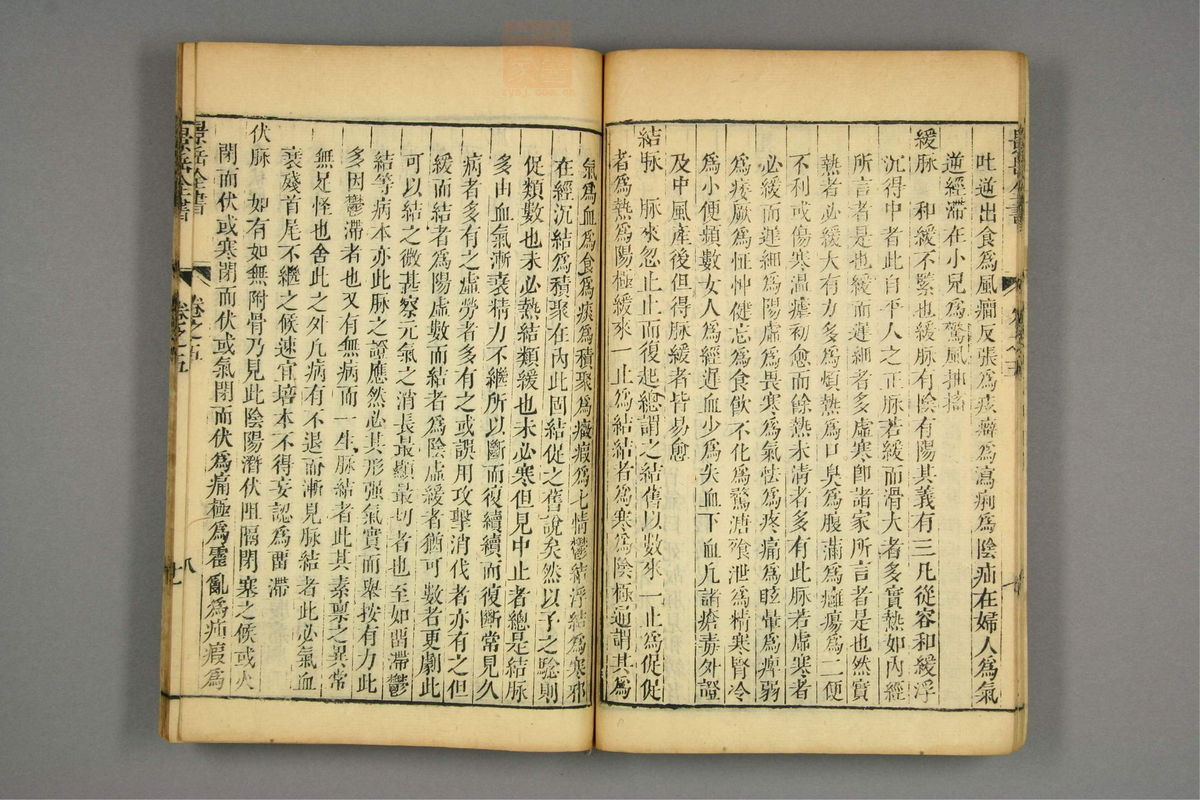 吐逆出食爲風癎反張爲痰癖爲瀉痢爲陰疝在婦人爲氣
逆經滯在小兒爲驚風抽搐
緩脉　和緩不緊也緩脉有陰有陽其義有三凡從容和緩浮
沉得中者此自平人之正脉若緩而滑大者多實熱如內經
所言者是也緩而遲細者多虛寒即諸家所言者是也然實
熱者必緩大有力多爲煩熱爲口臭爲腹滿爲癰瘍爲二便
不利或傷寒溫瘧初愈而餘熱未清者多有此脉若虛寒者
必緩而遲細爲陽虛爲畏寒爲氣怯爲疼痛爲眩暈爲痺弱
爲痿厥爲怔忡健忘爲食飲不化爲鶩溏飱泄爲精寒腎冷
爲小便頻數女人爲經遲血少爲失血下血凡諸瘡毒外證
及中風產後但得脉緩者皆易愈
結脉　脉來忽止止而復起總謂之結舊以數來一止爲促促
者爲熱爲陽極緩來一止爲結結者爲寒爲陰極通謂其爲
氣爲血爲食爲痰爲積聚爲癥瘕爲七情鬱結浮結爲寒邪
在經沉結爲積聚在內此固結促之舊說矣然以予之驗則
促類數也未必熱結類緩也未必寒但見中止者總是結脉
多由血氣漸衰精力不繼所以斷而復續續而復斷常見久
病者多有之虛勞者多有之或誤用攻擊消伐者亦有之但
緩而結者爲陽虛數而結者爲陰虛緩者猶可數者更劇此
可以結之微甚察元氣之消長最顯最切者也至如留滯鬱
結等病本亦此脉之證應然必其形强氣實而舉按有力此
多因鬱滯者也又有無病而一生脉結者此其素禀之異常
無足怪也舍此之外凡病有不退而漸見脉結者此必氣血
衰殘首尾不繼之候速宜培本不得妄認爲留滯
伏脉　如有如無附骨乃見此陰陽潛伏阻隔閉塞之候或火
閉而伏或寒閉而伏或氣閉而伏爲痛極爲霍亂爲疝瘕爲
景岳全書
卷之五